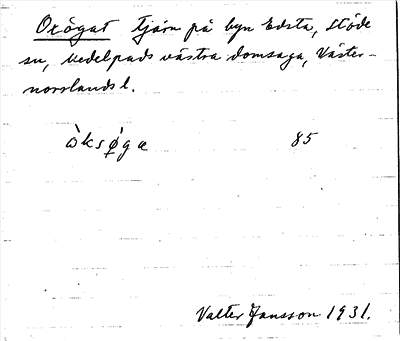 Oxögat tjärn på byn Edsta, Stöde
sn, Medelpads västra domsaga, Väster-
norrlands l.
òksǿga 85
Valter Jansson 1931.